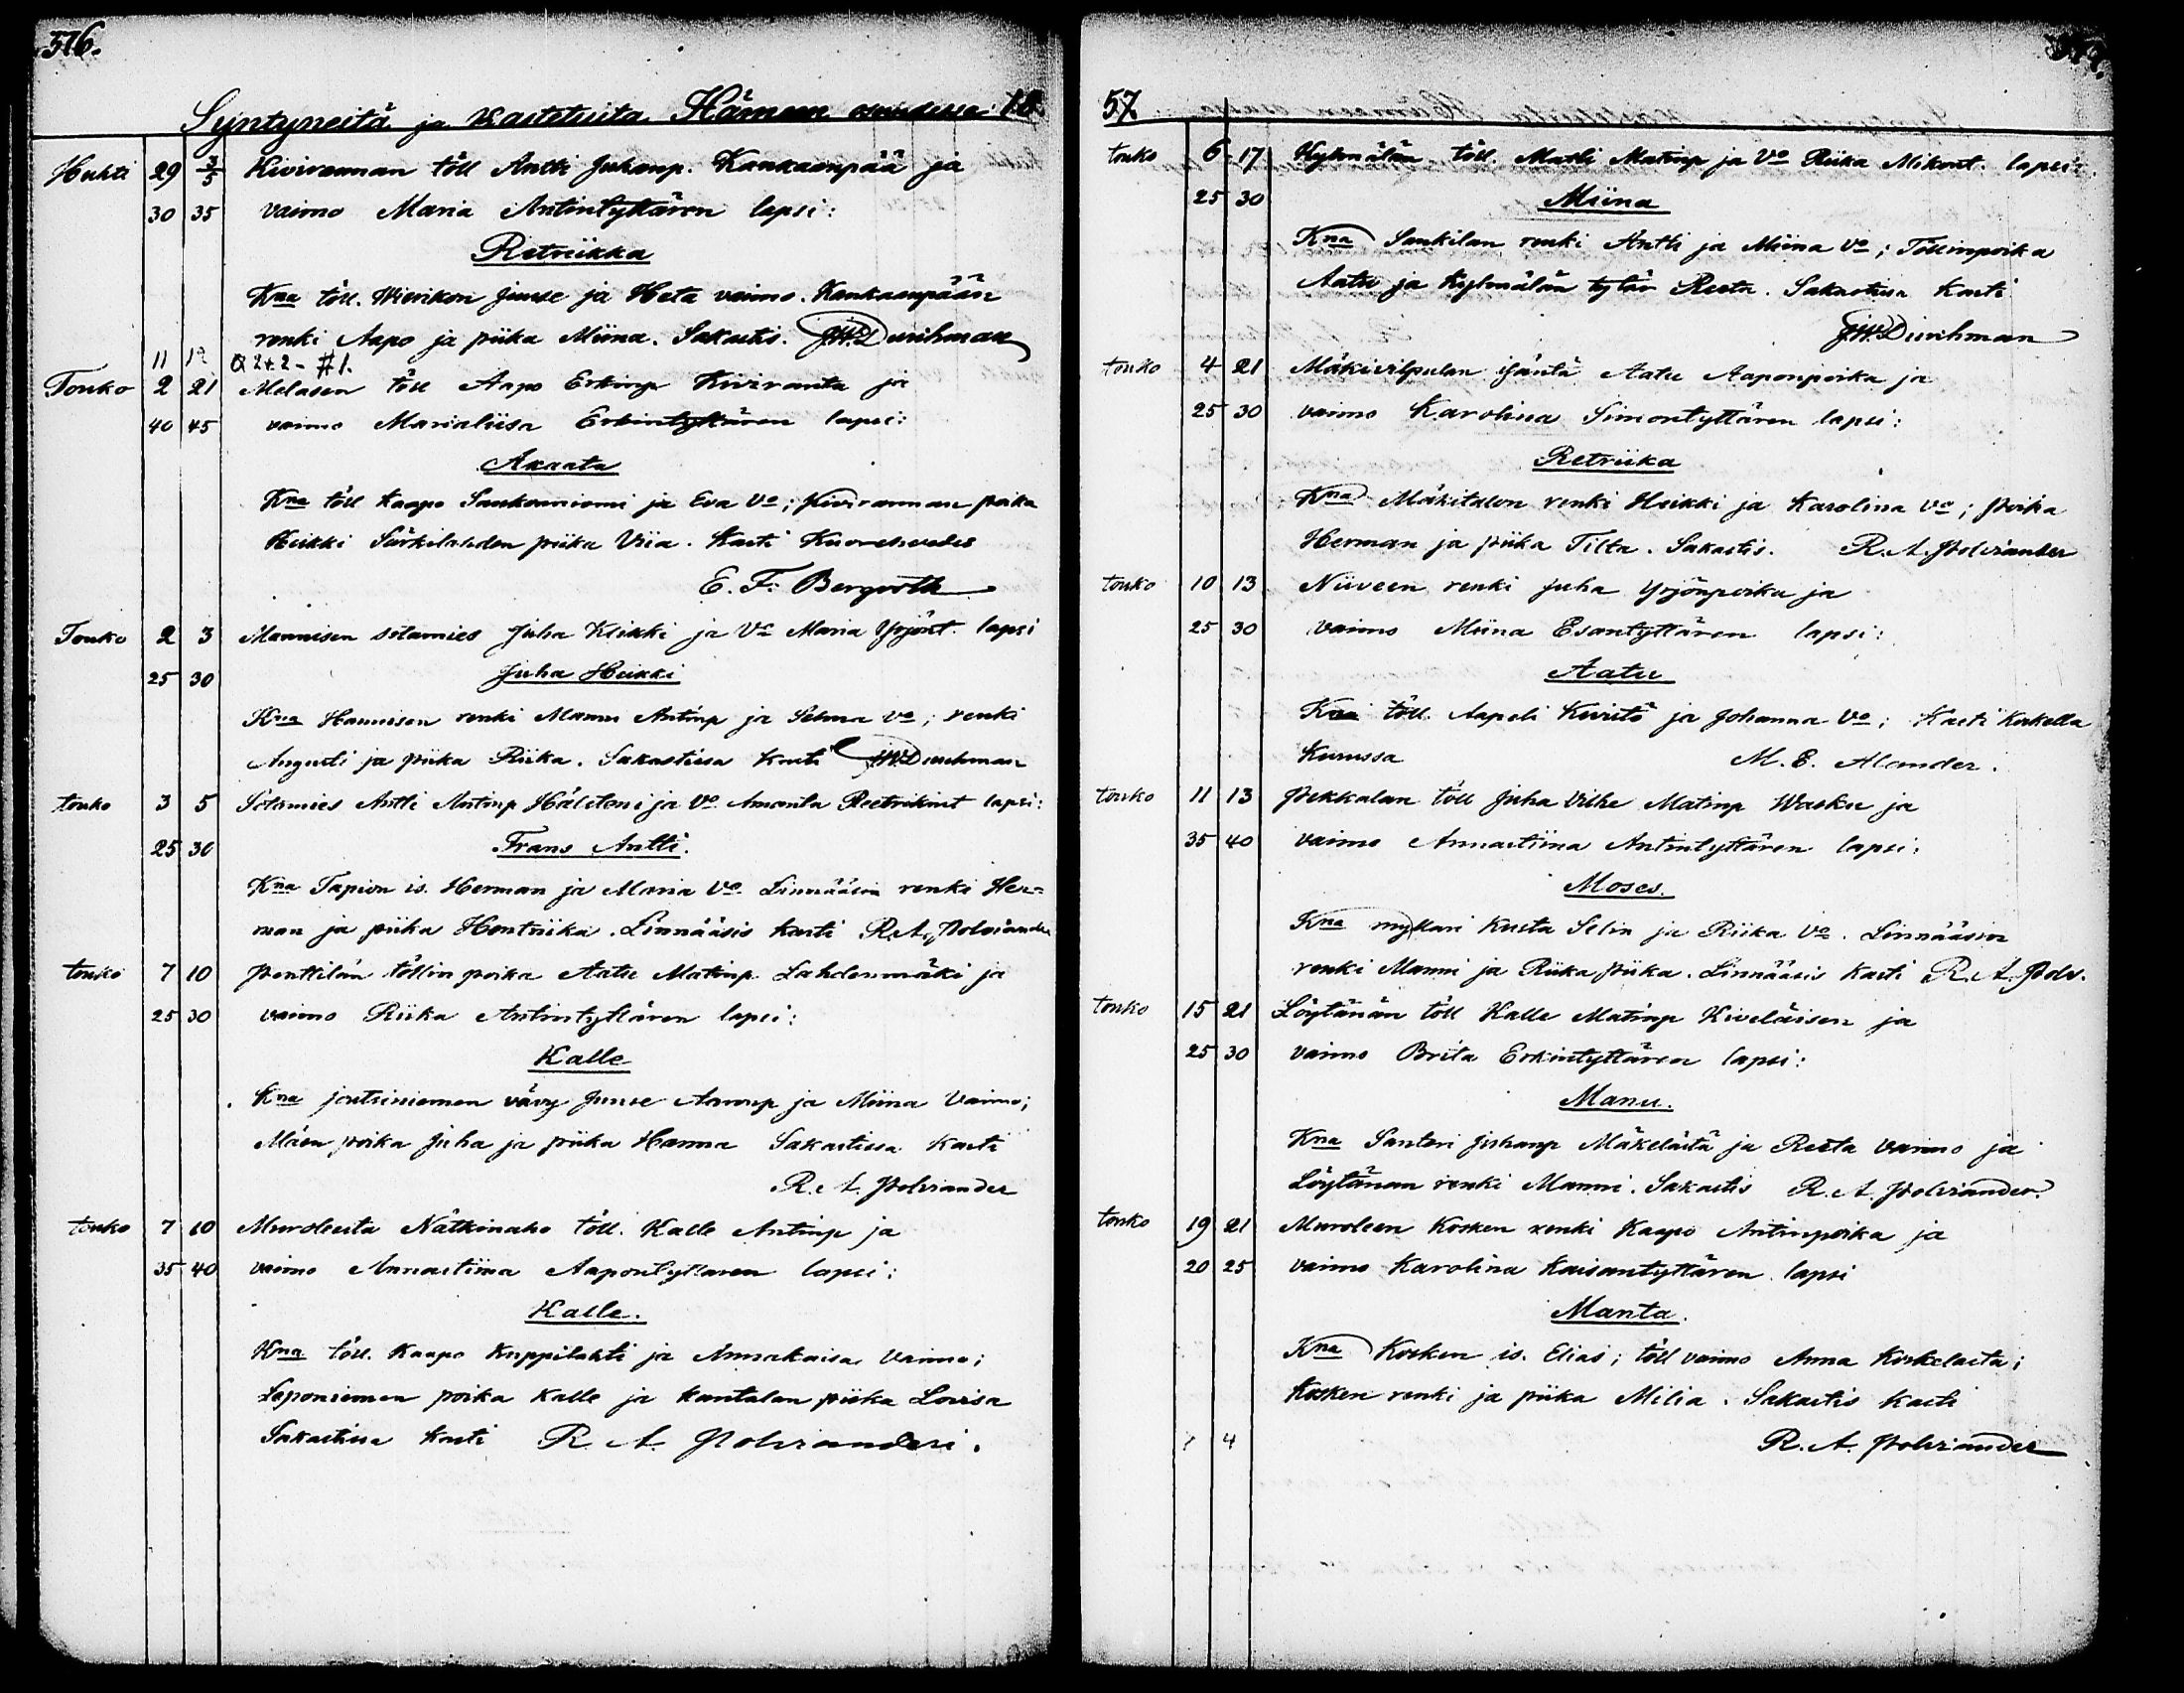 576.
Syntyneitä ja Kastetuita Hämeen osuudessa 18
Huhti 29 3/5 Kivirannan töll Antti Juhanp. Kankaanpää ja
30 35 vaimo Maria Antintyttären lapsi:
Retriikka
Kna töll. Juuse ja Heta vaimo. Kankaanpään
renki Aapo ja piika Miina. Sakastis. J.W. Durchman
11 12 Q 2+2 - #1.
Touko 2 21 Melasen töll Aapo Erkinp Kiviranta ja
40 45 vaimo Marialiisa Erkintyttären lapsi:
Akaata
Kna töll Kaapo Sankaaniemi ja Eva Vo; Kivirannan poika
Heikki Särkilahden piika Viia. Kasti Kuorehvedes
E. F. Bergroth
Touko 2 3 Mannisen sotamies Juha Klikki ja Vo Maria Yrjönt. lapsi
25 30 Juha Heikki
Kna Hannisen renki Manu Antinp ja Selma vo; renki
Augusti ja piika Riika. Sakastissa Kasti J.W. Durchman
touko 3 5 Sotamies Antti Antinp Hälsteni ja Vo Amanta Reetrikint lapsi:
25 30 Frans Antti.
Kna Tapion is. Herman ja Maria Vo. Linnääsin renki Her=
man ja piika Hentriika. Linnääsis kasti R.A. Polviander
touko 7 10 Penttilän töllin poika Aatu Matinp. Lahdenmäki ja
25 30 vaimo Riika Antintyttären lapsi:
Kalle
Kna joutsiniemen vävy Juuse Aaronp ja Miina Vaimo;
Mäen poika Juha ja piika Hanna Sakastissa Kasti
R. A. Polviander
touko 7 10 Muroleesta Nätkinaho töll. Kalle Antinp ja
35 40 vaimo Annastiina Aapontyttaren lapsi:
Kalle.
Kna töll. Kaapo Kuppilahti ja Annakaisa Vaimo;
Leponiemen poika Kalle ja kantalan piika Lovisa
Sakastissa Kasti R. A. Polvianderi.
57
touko 6 17 Kylmälän töll. Matti Matinp ja Vo Riika Mikont. lapsi:
25 30 Miina
Kna Sankilan renki Antti ja Miina Vo; Töllinpoika
Aatu ja Kylmälän tytär Reeta. Sakastissa Kasti
J.W. Durchman
touko 4 21 isäntä Aatu Aaponpoika ja
25 30 vaimo Karolina Simontyttären lapsi:
Retriika
Kna Mäkitalon renki Heikki ja Karolina vo; Poika
Herman ja piika Tilta. Sakastis. R. A. Polviander
touko 10 13 Niiveen renki Juha Yrjönpoika ja
25 30 vaimo Miina Esantyttären lapsi:
Aatu
Kna töll. Aapeli Kivistö ja Johanna Vo; Kasti Kirkolla
Kurussa M. E. Alander.
touko 11 13 Pekkalan töll Juha Vilhe Matinp Wasku ja
35 40 vaimo Annastiina Antintyttären lapsi:
Moses.
Kna mylläri Kusta Selin ja Riika Vo. Linnääsin
renki Manni ja Riika piika. Linnääsis Kasti R. A. Polv.
touko 15 21 Löytänän töll Kalle Matinp Kiveläisen ja
25 30 vaimo Brita Erkintyttären lapsi:
Manu.
Kna Santeri Juhanp Mäkelästä ja Reeta vaimo ja
Löytänän renki Manni. Sakastis R. A. Polviander.
touko 19 21 Muroleen Kosken renki Kaapo Antinpoika ja
20 25 vaimo Karolina Kaisantyttären lapsi
Manta.
Kna Kosken is. Elias; töll vaimo Anna Koskelasta;
Kosken renki ja piika Milia. Sakastis Kasti
4 R. A. Polviander